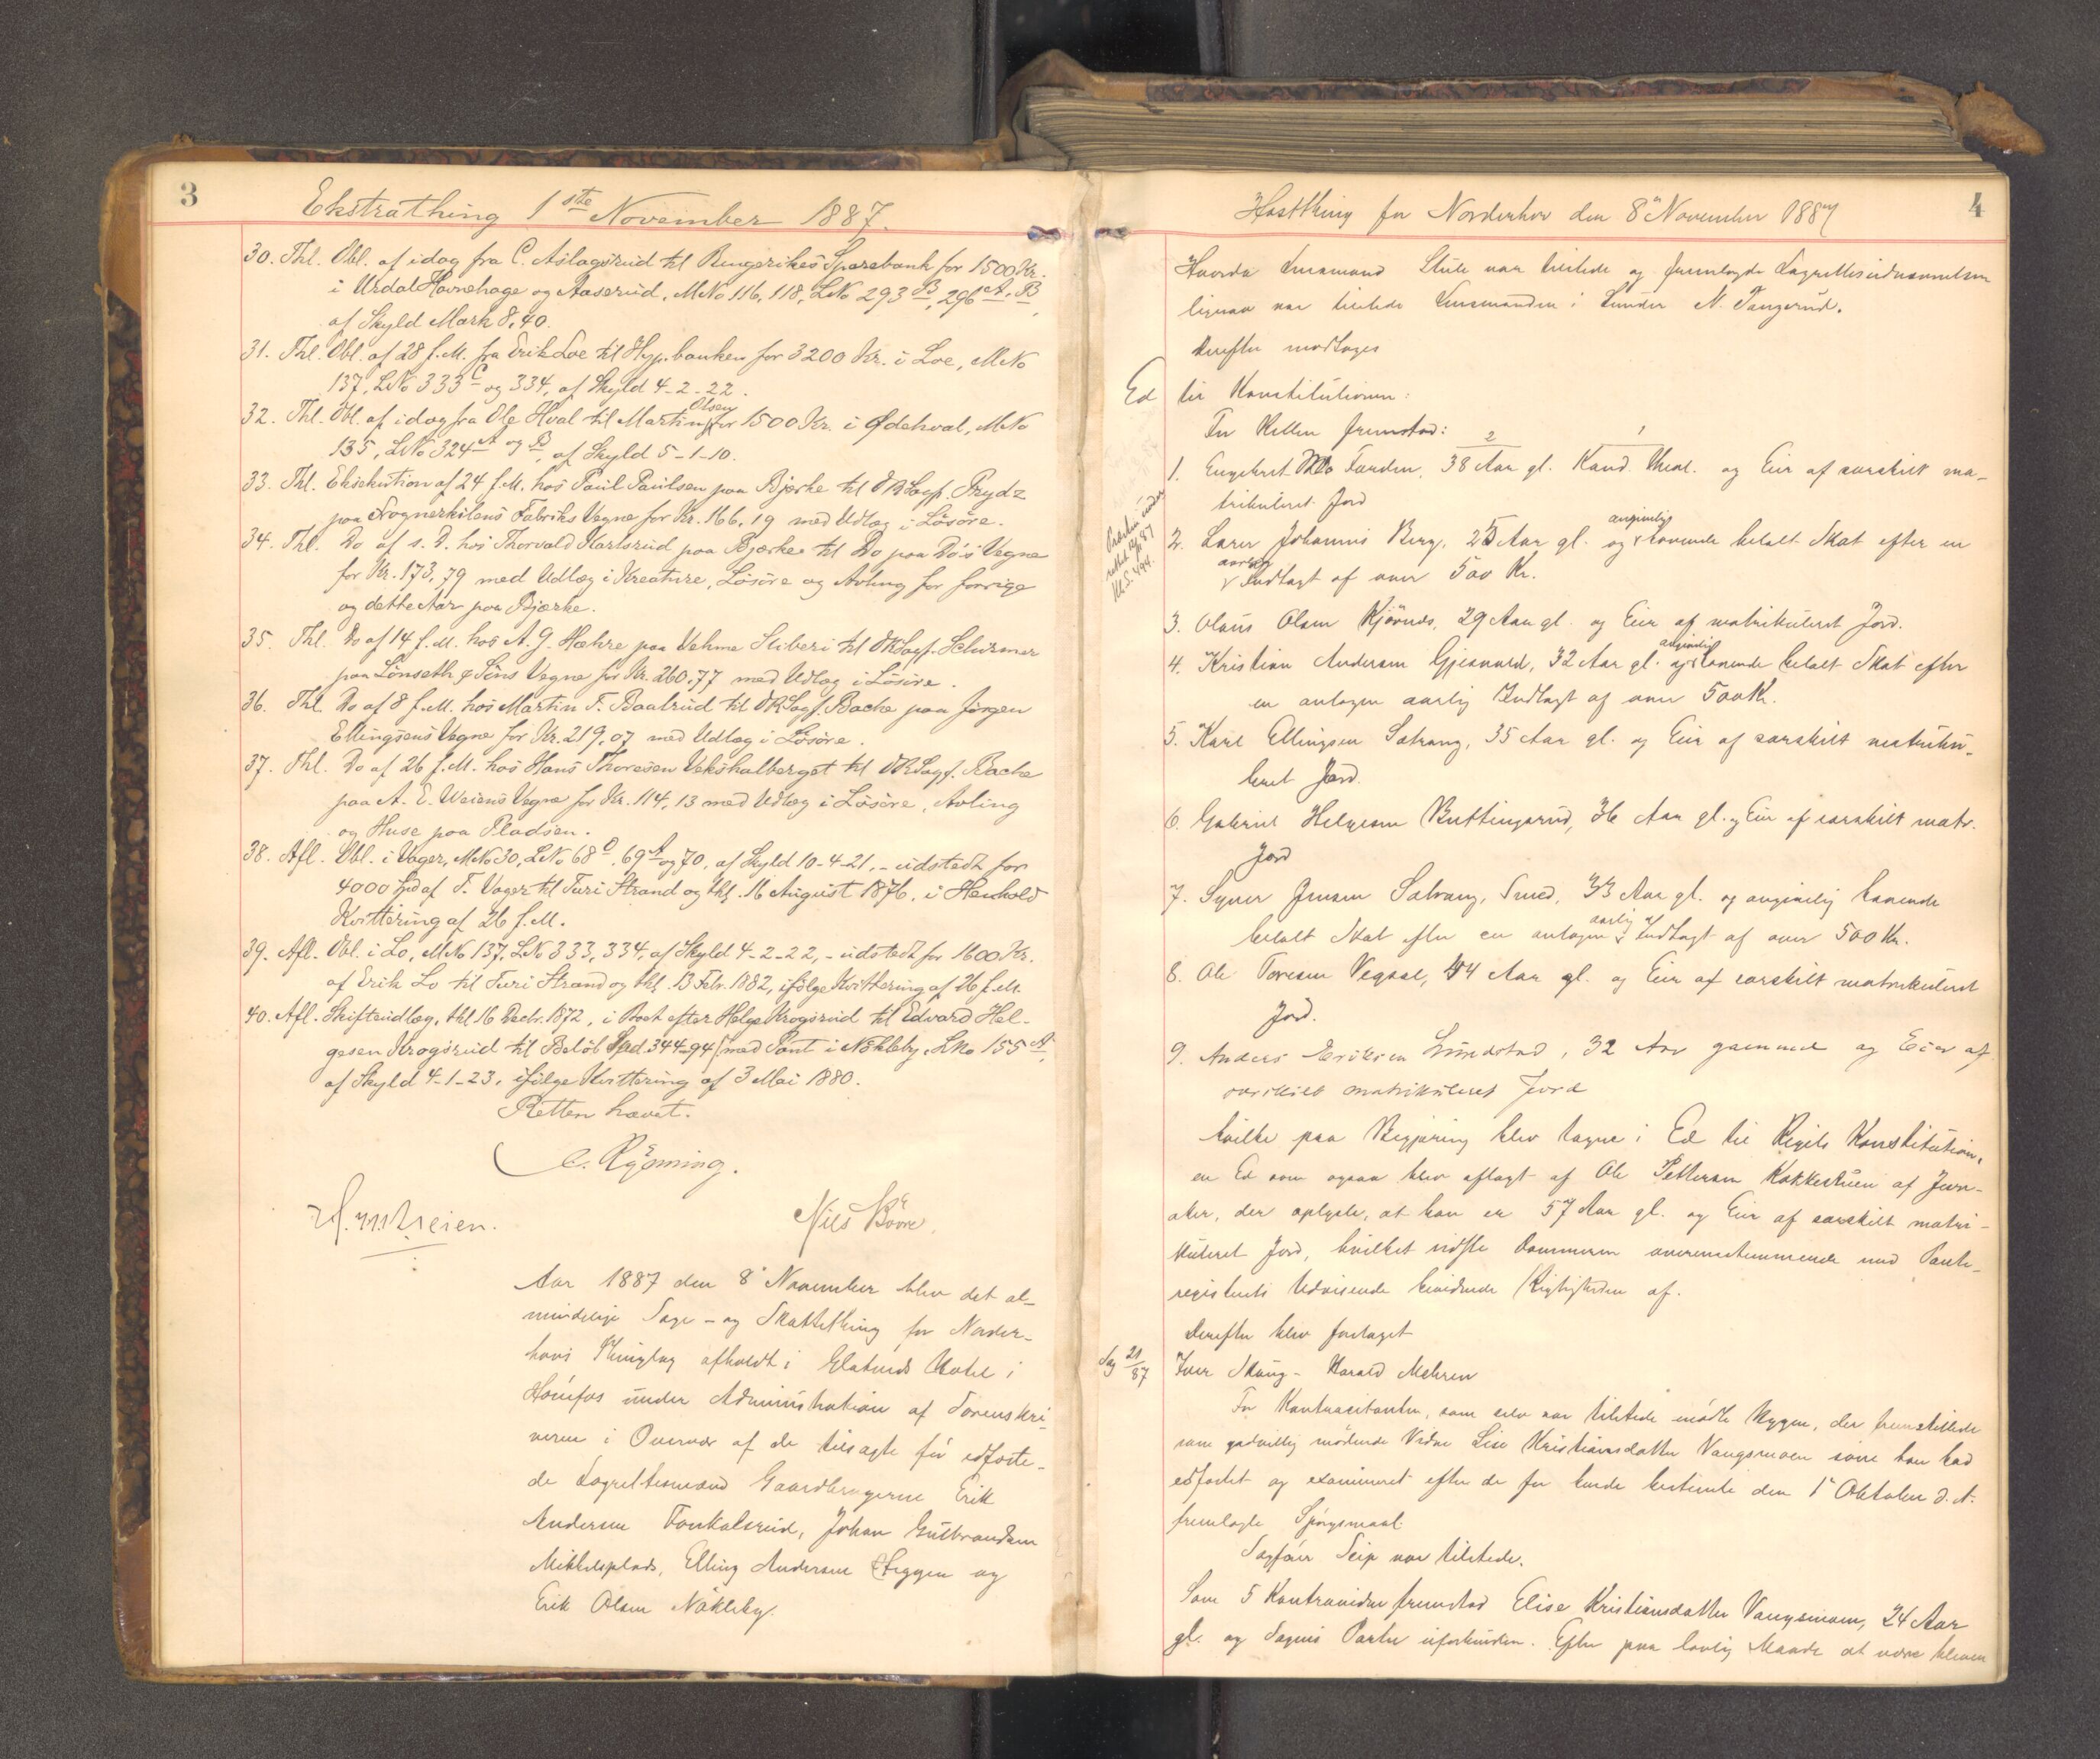 3
Ekstrathing 1ste November 1887.
30. Thl. Obl. af idag fra C. Aslagsrud til Ringerikes Sparebank for 1500 Kr.
i Urdal Havnehage og Aaserud, MNo 116, 118, LNo 293 B, 296 A, B,
af Skyld Mark 8,40.
31. Thl. Obl. af 28 f.M. fra Erik Loe til Hyp.banken for 3200 Kr. i Loe, MNo
137, LNo 333 C og 334, af Skyld 4-2-22.
32. Thl. Obl. af idag fra Ole Hval til Martin Olsen for 1500 Kr. i Ødehval, MNo
135, LNo 324 A og B, af Skyld 5-1-10.
33. Thl. Eksekution af 24 f.M. hos Paul Paulsen paa Bjerke til ORSagf. Prydz
paa Frognerkilens Fabriks Vegne for Kr. 166,19 med Udlæg i Løsøre.
34. Thl. Do af s.D. hos Thorvald Karlsrud paa Bjerke til Do paa Do's Vegne
for Kr. 173,79 med Udlæg i Kreature, Løsøre og Avling for forrige
og dette Aar paa Bjerke.
35. Thl. Do af 14 f.M. hos A. G. Hæhre paa Vehme Sliberi til ORSagf. Schirmer
paa Lønseth & Søns Vegne for Kr. 260,77 med Udlæg i Løsøre.
36. Thl. Do af 8 f.M. hos Martin T. Baalrud til ORSagf. Bache paa Jørgen
Ellingsens Vegne for Kr. 219,07 med Udlæg i Løsøre.
37. Thl. Do af 26 f.M. hos Hans Thoresen Vekshalberget til ORSagf. Bache
paa A. E. Weiens Vegne for Kr. 114,13 med Udlæg i Løsøre, Avling
og Huse paa Pladsen.
38. Afl. Obl. i Vager, MNo 30, LNo 68 D, 69 A og 70, af Skyld 10-4-21, - udstedt for
4000 Spd af T. Vager til Turi Strand og thl. 16 August 1876, i Henhold
Kvittering af 26 f.M.
39. Afl. Obl. i Lo, MNo 137, LNo 333, 334, af Skyld 4-2-22, - udstedt for 1600 Kr.
af Erik Lo til Turi Strand og thl. 13 Febr. 1882, ifølge Kvittering af 26 f.M.
40. Afl. Skifteudlæg, thl 16 Decbr. 1872, i Boet efter Helge Krogsrud til Edvard Hel-
gesen Krogsrud til Beløb Spd. 344-94 med Pant i Nøkleby, LNo 155 A,
af Skyld 4-1-23, ifølge Kvittering af 3 Mai 1880.
Retten hævet.
C. Rynning.
Nils Boore
Aar 1887 den 8 November blev det al-
mindelige Sage- og Skattething for Norder-
hovs Thinglag afholdt i Glatveds Hotel i
Hønefos under Administration af Sorenskri-
veren i Overvær af de tilsagte før edfæste-
de Lagrettesmænd Gaardbrugerne Erik
Andersen Fonkalsrud, Johan Gulbrandsen
Mikkelsplads, Elling Andersen Heggen og
Erik Olsen Nøkleby.
4
Høstthing for Norderhov den 8 November 1887
Hvorda Lensmand Stub var tilstede og fremlagde Lagrettesudnævnelsen
ligesaa var tilstede Lensmanden i Lunder N. Tangerud.
Derefter modtoges
Ed til Konstitutionen:
For Retten fremstod:
2 1
1. Engebret Moe Færden, 38 Aar gl. Kand. theol. og Eier af særskilt ma-
trikuleret Jord
2. Lærer Johannes Berg, 25 Aar gl. og angivelig havende betalt Skat efter en
aarlig Indtægt af over 500 Kr.
3. Olaus Olsen Kjørnds, 29 Aar gl. og Eier af matrikuleret Jord.
4. Kristian Andersen Gjesvold, 32 Aar gl. og angivelig havende betalt Skat efter
en antagen aarlig Indtægt af over 500 Kr.
5. Karl Ellingsen Sætrang, 35 Aar gl. og Eier af særskilt matriku-
leret Jord.
6. Gabriel Helgesen Buttingsrud, 36 Aar gl. og Eier af særskilt matr.
Jord
7. Syver Jensen Sætrang, Smed, 33 Aar gl. og angivelig havende
betalt Skat efter en antagen aarlig Indtægt af over 500 Kr.
8. Ole Toresen Vegsal, 44 Aar gl. og Eier af særskilt matrikuleret
Jord.
9. Anders Eriksen Lundstad, 32 Aar gammel og Eier af
særskilt matrikuleret Jord
hvilke paa Begjæring blev tagne i Ed til Rigets Konstitution,
en Ed som ogsaa blev aflagt af Ole Pettersen Kokkestuen af Jevn-
aker, der oplyste, at han er 57 Aar gl. og Eier af særskilt matri-
kuleret Jord, hvilket sidste Dommeren overensstemmende med Pante-
registerets Udvisende bevidnede Rigtigheden af.
Derefter blev foretaget
Sag 21/87 Iver Skaug - Harald Mehren
For Kontracitanten, som selv var tilstede mødte Nygge, der fremstillede
som godvillig mødende Vidne Lise Kristiansdatter Vangsmoen som han bad
edfæstet og examineret efter de for hende bestemte den 1 Oktober d.A.
fremlagte Spørgsmaal.
Sagfører Seip var tilstede.
Som 5 Kontravidne fremstod Elise Kristiansdatter Vangsmoen, 24 Aar
gl. og Sagens Parter uforbunden. Efter paa lovlig Maade at være bleven